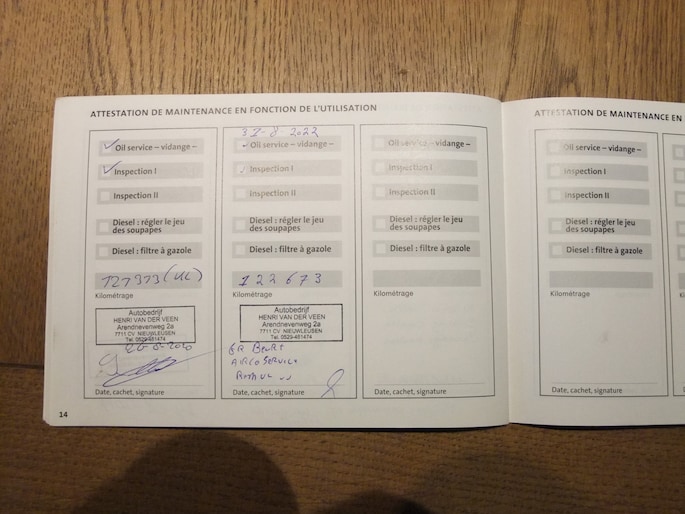 ATTESTATION DE MAINTENANCE EN FONCTION DE L'UTILISATION
Oil service – vidange –
Inspection I
Inspection II
Diesel : régler le jeu
des soupapes
Diesel : filtre à gazole
Kilométrage
Autobedrijf
HENRI VAN DER VEEN
Arendnevenweg 2a
7711 CV NIEUWLEUSEN
Tel. 0529-481474
26-8-2020
Date, cachet, signature
31-8-2022
Oil service – vidange –
Inspection I
Inspection II
Diesel : régler le jeu
des soupapes
Diesel : filtre à gazole
122673
Kilométrage
Autobedrijf
HENRI VAN DER VEEN
Arendnevenweg 2a
7711 CV NIEUWLEUSEN
Tel. 0529-481474
GR BEURT
AIRCO SERVICE
Date, cachet, signature
Oil service – vidange –
Inspection I
Inspection II
Diesel : régler le jeu
des soupapes
Diesel : filtre à gazole
Kilométrage
Date, cachet, signature
14
ATTESTATION DE MAINTENANCE EN
Oil service – vidange –
Inspection I
Inspection II
Diesel : régler le jeu
des soupapes
Diesel : filtre à gazole
Kilométrage
Date, cachet, signature